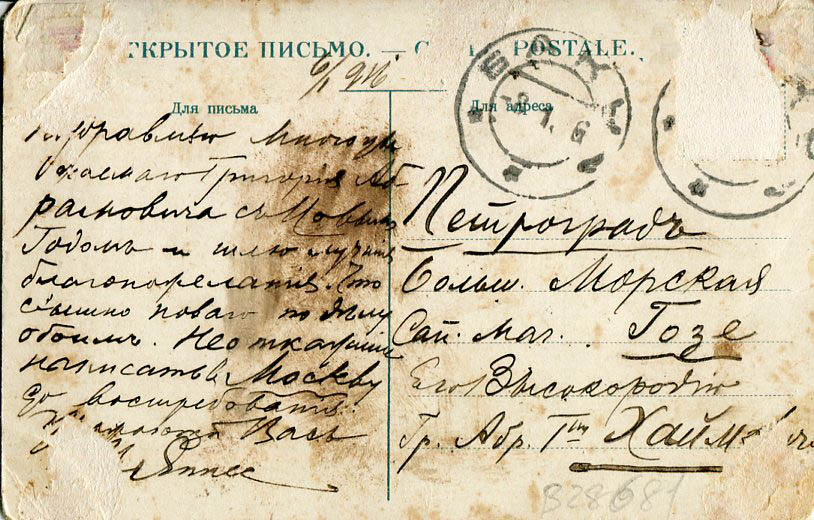 ОТКРЫТОЕ ПИСЬМО. — POSTALE.
Для письма
Для адреса
БАКУ
2.1.16
Поздравляю Многоув
ажаемаго Григорія Аб
рамовича съ Новымъ
Годомъ и шлю лучшія
благопожеланія. Что
слышно новаго по дѣлу
обоимъ. Не откажите
написать въ Москву
до востребованія.
Васъ
Петроградъ
Больш. Морская
Маг. Гозе
Его Высокородію
Гр. Абр. Г-ну
B28681